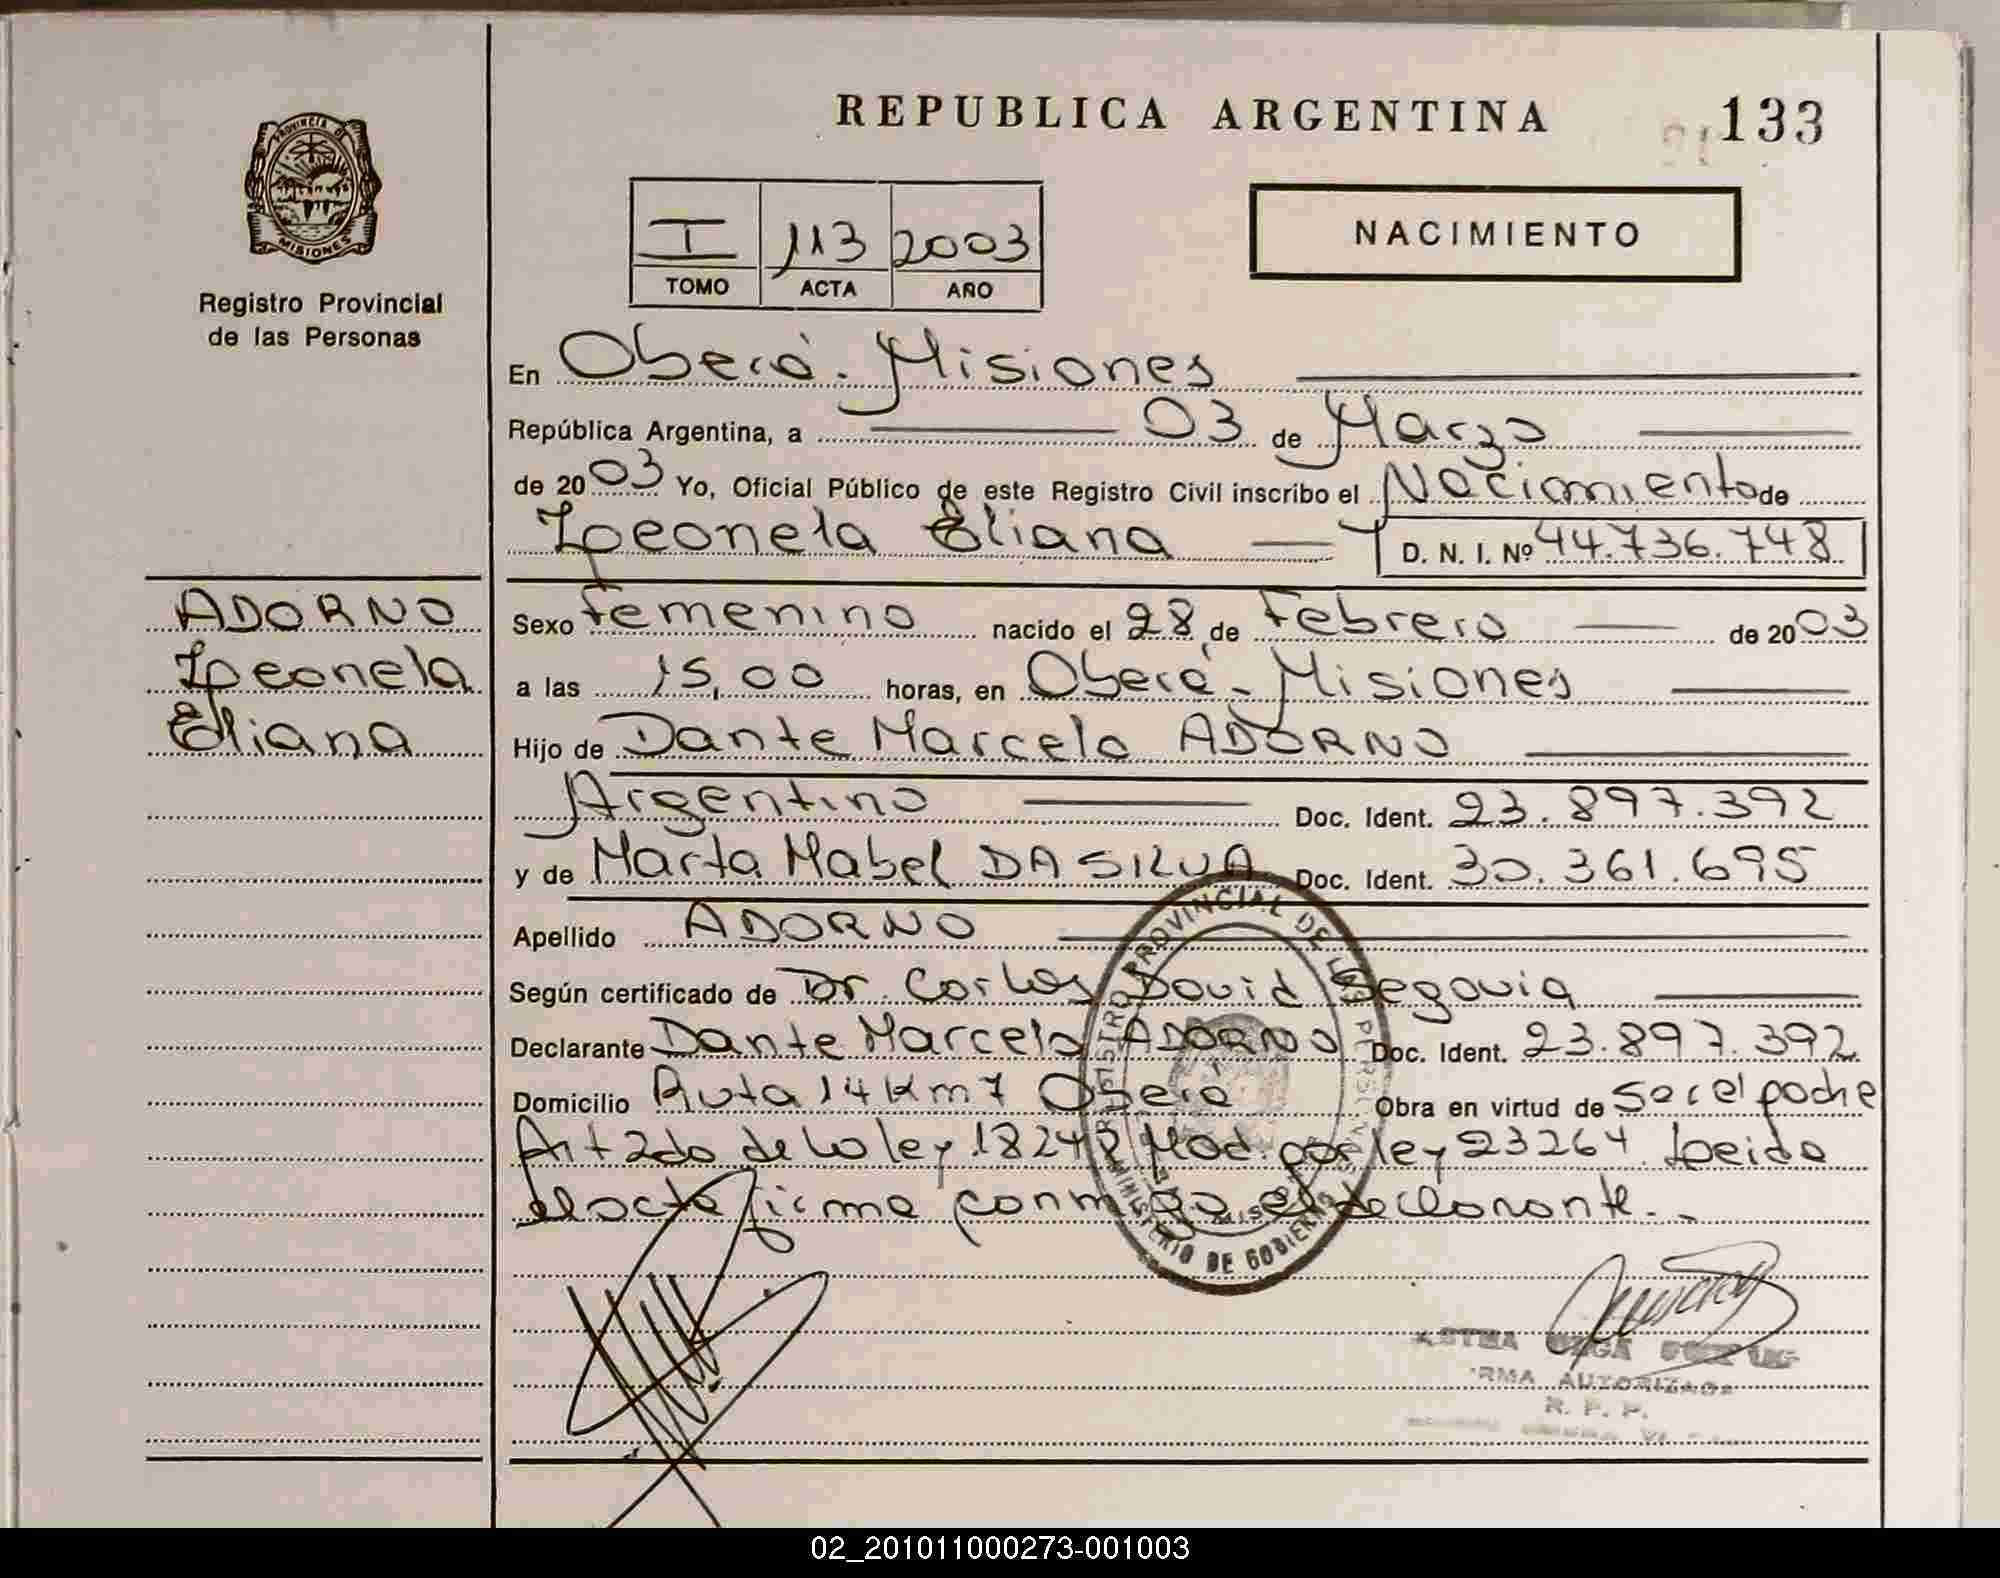 REPUBLICA ARGENTINA
133
PROVINCIA DE
MISIONES
Registro Provincial
de las Personas
I 113 2003
TOMO ACTA AÑO
NACIMIENTO
En Oberá - Misiones
República Argentina, a 03 de Marzo
de 2003 Yo, Oficial Público de este Registro Civil inscribo el Nacimiento de
Leonela Eliana D. N. I. Nº 44.736.748
ADORNO
Leonela
Eliana
Sexo femenino nacido el 28 de Febrero de 2003
a las 15,00 horas, en Oberá - Misiones
Hijo de Dante Marcelo ADORNO
Argentino Doc. Ident. 23.897.392
y de Marta Mabel DA SILVA Doc. Ident. 30.361.695
Apellido ADORNO
Según certificado de Dr. Carlos David Segovia
Declarante Dante Marcelo ADORNO Doc. Ident. 23.897.392
Domicilio Ruta 14 Km 7 Oberá Obra en virtud de ser el padre
Art 2do de la ley 18248 Mod. por ley 23264. Leida
el acta firma conmigo el declarante.
REGISTRO PROVINCIAL DE LAS PERSONAS
MINISTERIO DE GOBIERNO
FIRMA AUTORIZADA
R. P. P.
02_201011000273-001003